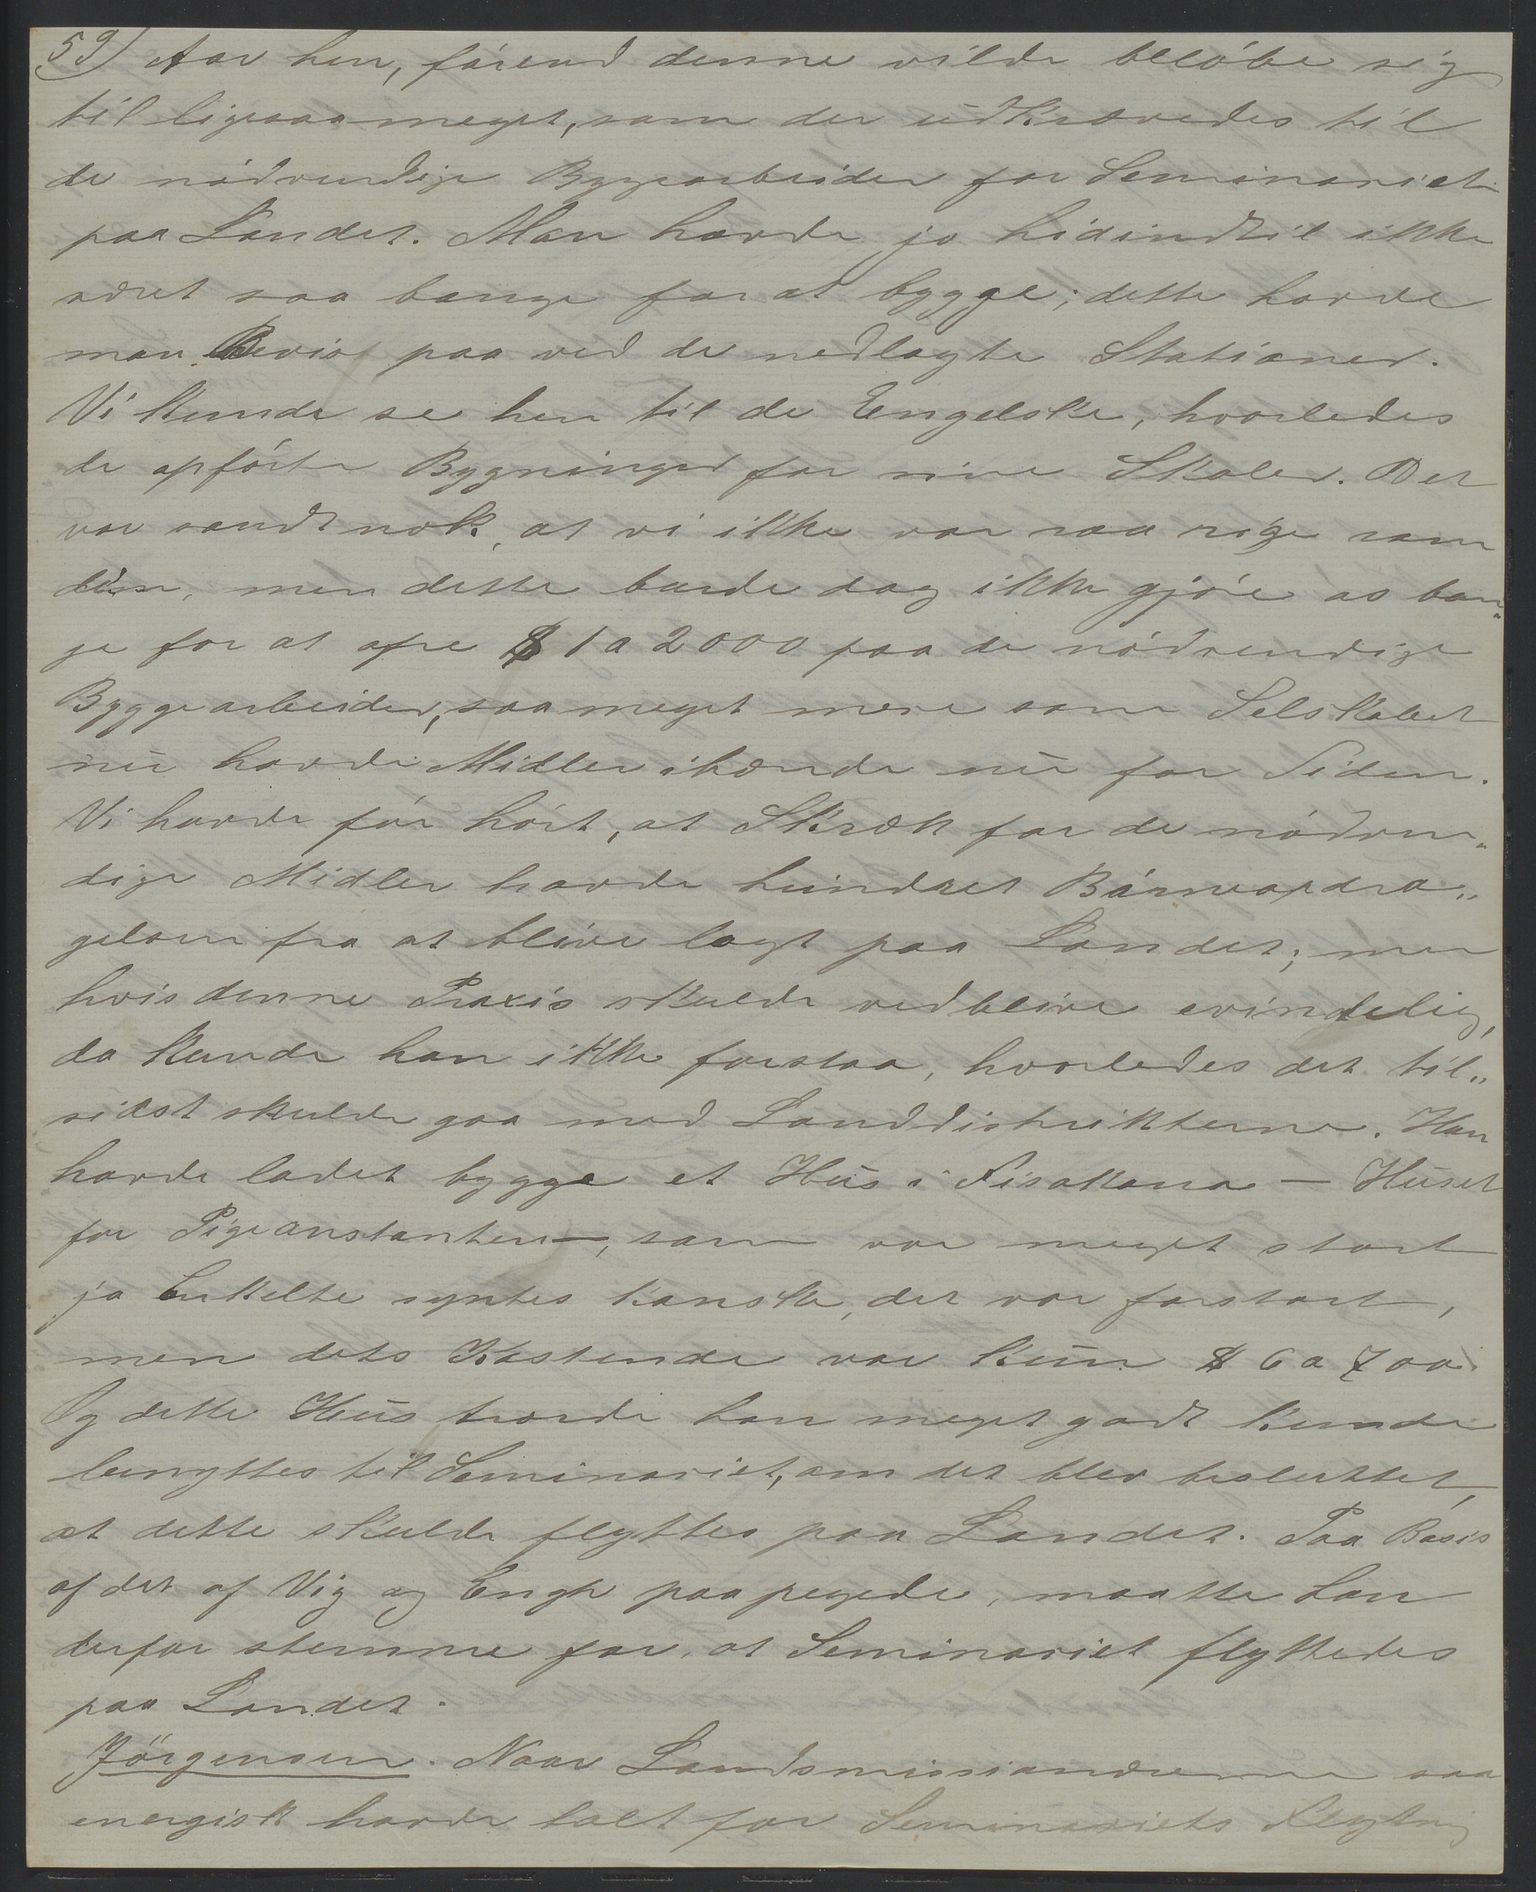 59) Aar hen, førend denne vilde beløbe sig
til ligesaa meget, som der udkrævedes til
de nødvendige Byggearbeider for Seminariet
paa Landet. Man havde jo hidindtil ikke
været saa bange for at bygge; dette havde
man Bevis paa ved de nedlagte Stationer.
Vi kunde se hen til de Engelske, hvorledes
de opførte Bygninger for sine Skoler. Det
var sandt nok, at vi ikke var saa rige som
dem, men dette burde dog ikke gjøre os ban-
ge for at ofre $ 1 a 2000 paa de nødvendige
Byggearbeider, saa meget mere som Selskabet
nu havde Midler ihænde nu for Tiden.
Vi havde før hørt, at Skræk for de nødven-
dige Midler havde hindret Børneopdra-
gelsen fra at blive lagt paa Landet; men
hvis denne Praxis skulde vedblive evindelig,
da kunde han ikke forstaa, hvorledes det til-
sidst skulde gaa med Landdistrikterne. Han
havde ladet bygge et Hus i Fisakana — Huset
for Pigeanstalten —, som var meget stort
ja Enkelte syntes kanske, det var forstort,
men dets Kostende var kun $ 6 a 700.
Og dette Hus troede han meget godt kunde
benyttes til Seminariet, om det blev besluttet,
at dette skulde flyttes paa Landet. Paa Basis
af det af Vig og Engh paapegede, maatte han
derfor stemme for, at Seminariet flyttedes
paa Landet.
Jørgensen. Naar Landsmissionærerne saa
energisk havde talt for Seminariets Flytning